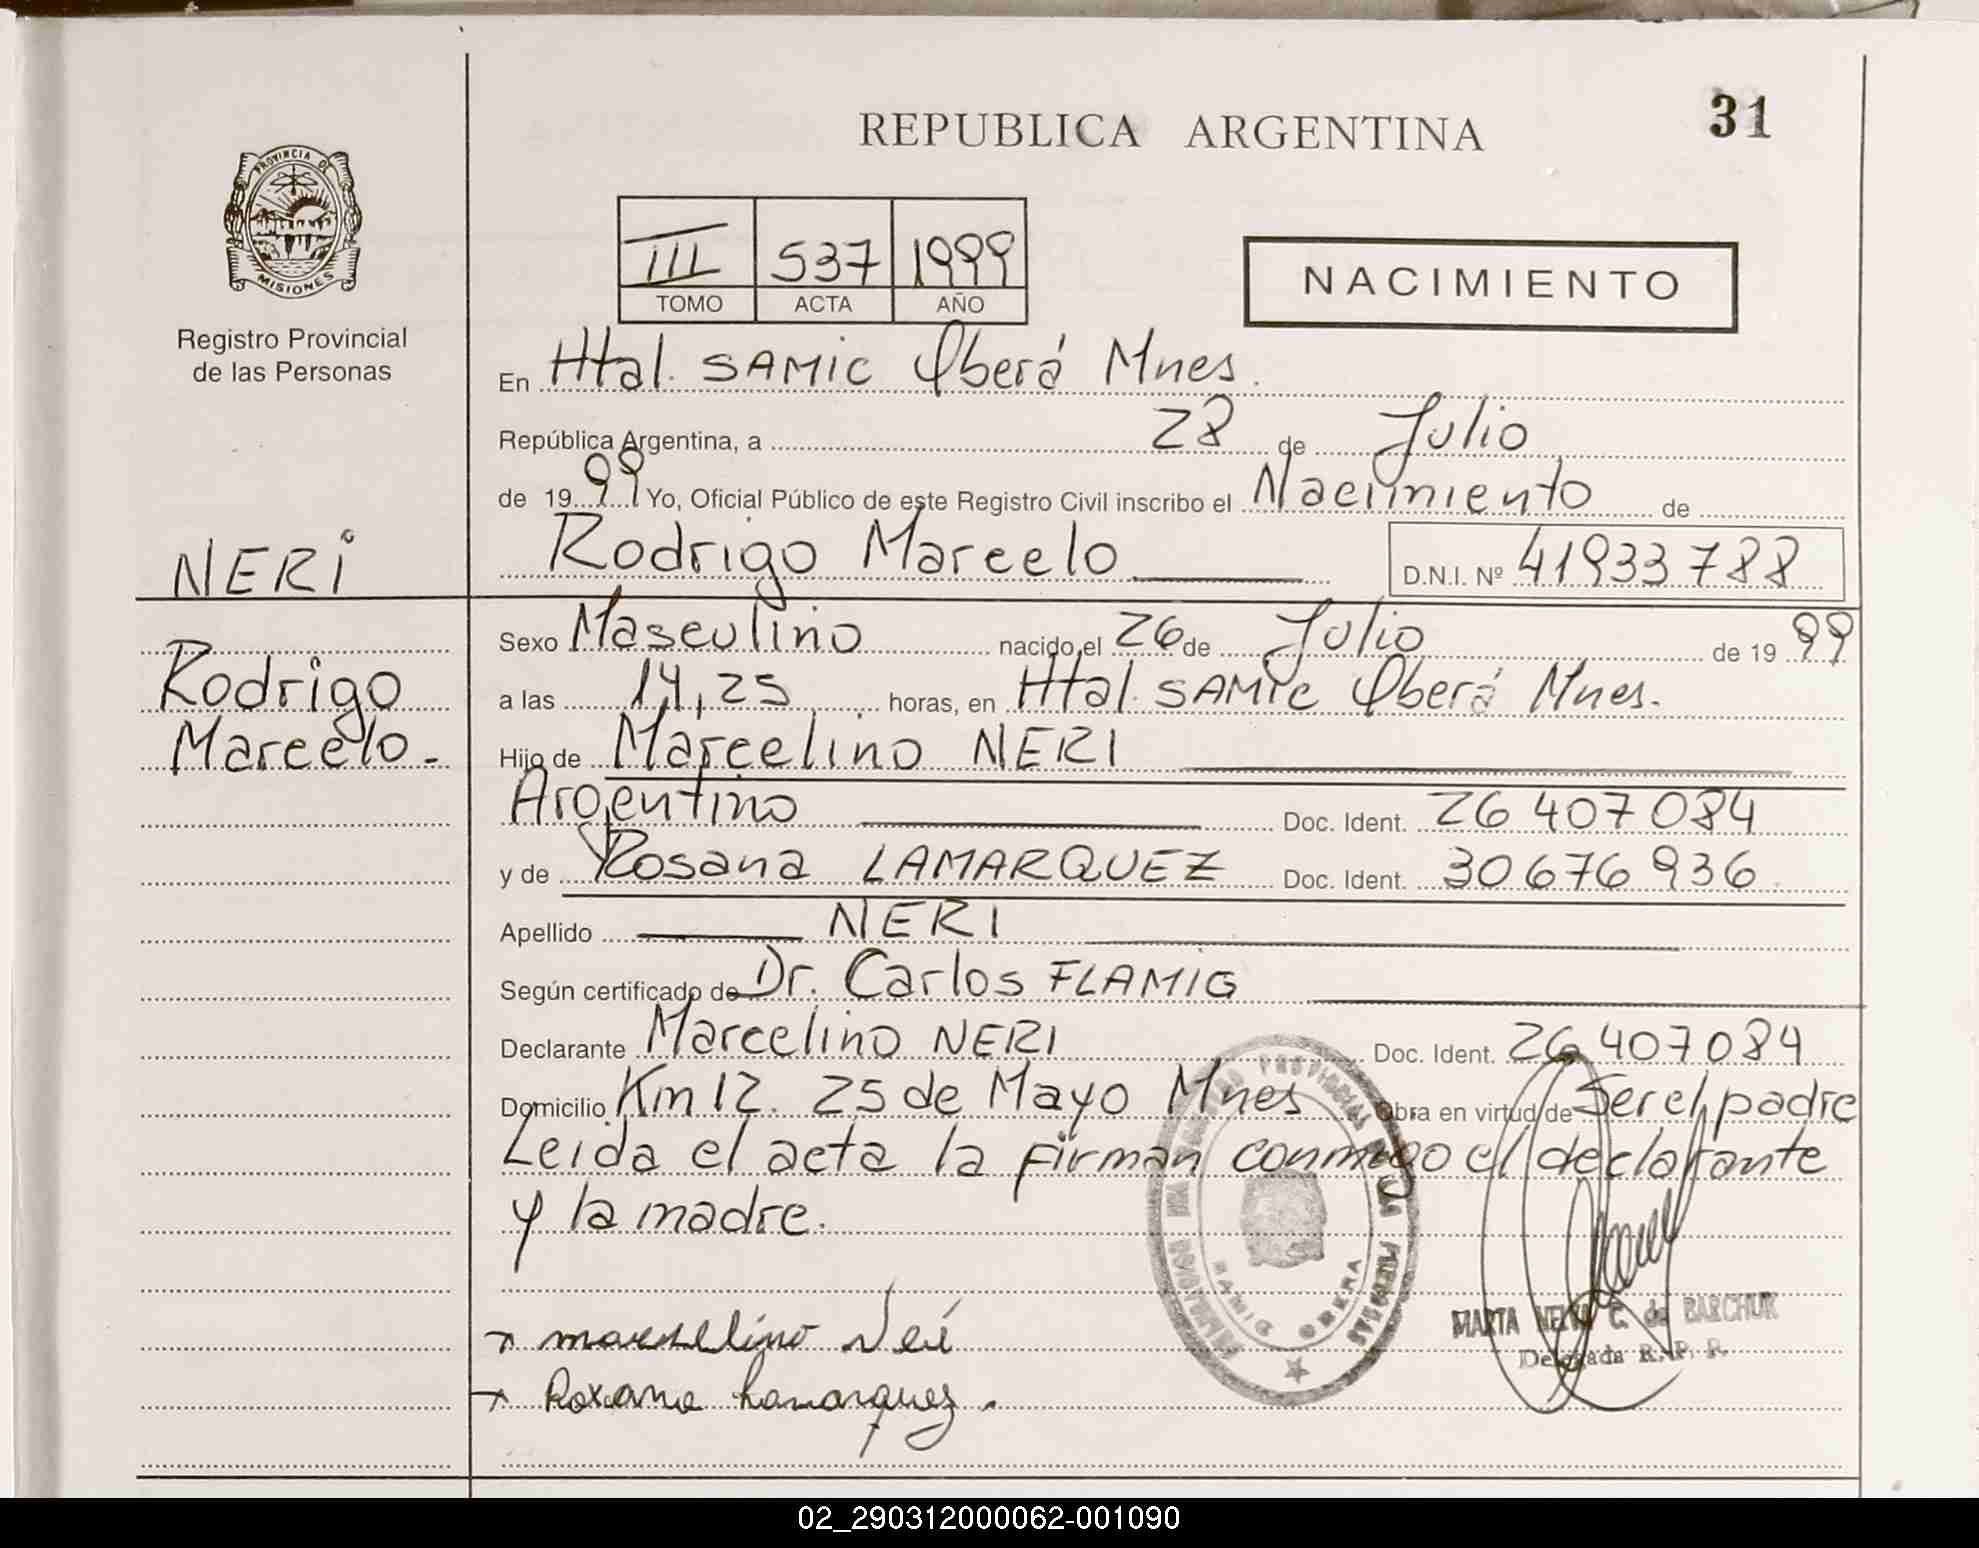 31
REPUBLICA ARGENTINA
PROVINCIA DE
MISIONES
Registro Provincial
de las Personas
III 537 1999
TOMO ACTA AÑO
NACIMIENTO
En Htal. SAMIC Oberá Mnes.
República Argentina, a 28 de Julio
de 1999 Yo, Oficial Público de este Registro Civil inscribo el Nacimiento de
NERI
Rodrigo Marcelo D.N.I. Nº 41933788
Rodrigo
Marcelo.-
Sexo Masculino nacido el 26 de Julio de 1999
a las 14,25 horas, en Htal. SAMIC Oberá Mnes.
Hijo de Marcelino NERI
Argentino Doc. Ident. 26407084
y de Rosana LAMARQUEZ Doc. Ident. 30676936
Apellido NERI
Según certificado de Dr. Carlos FLAMIG
Declarante Marcelino NERI Doc. Ident. 26407084
Domicilio Km 12. 25 de Mayo Mnes Obra en virtud de Ser el padre
Leida el acta la firman conmigo el declarante
y la madre.
SAMIC OBERA
MARTA C. de BARCHUK
Delegada R. P. P.
marselino Neri
Roxana Lamarquez.
02_290312000062-001090